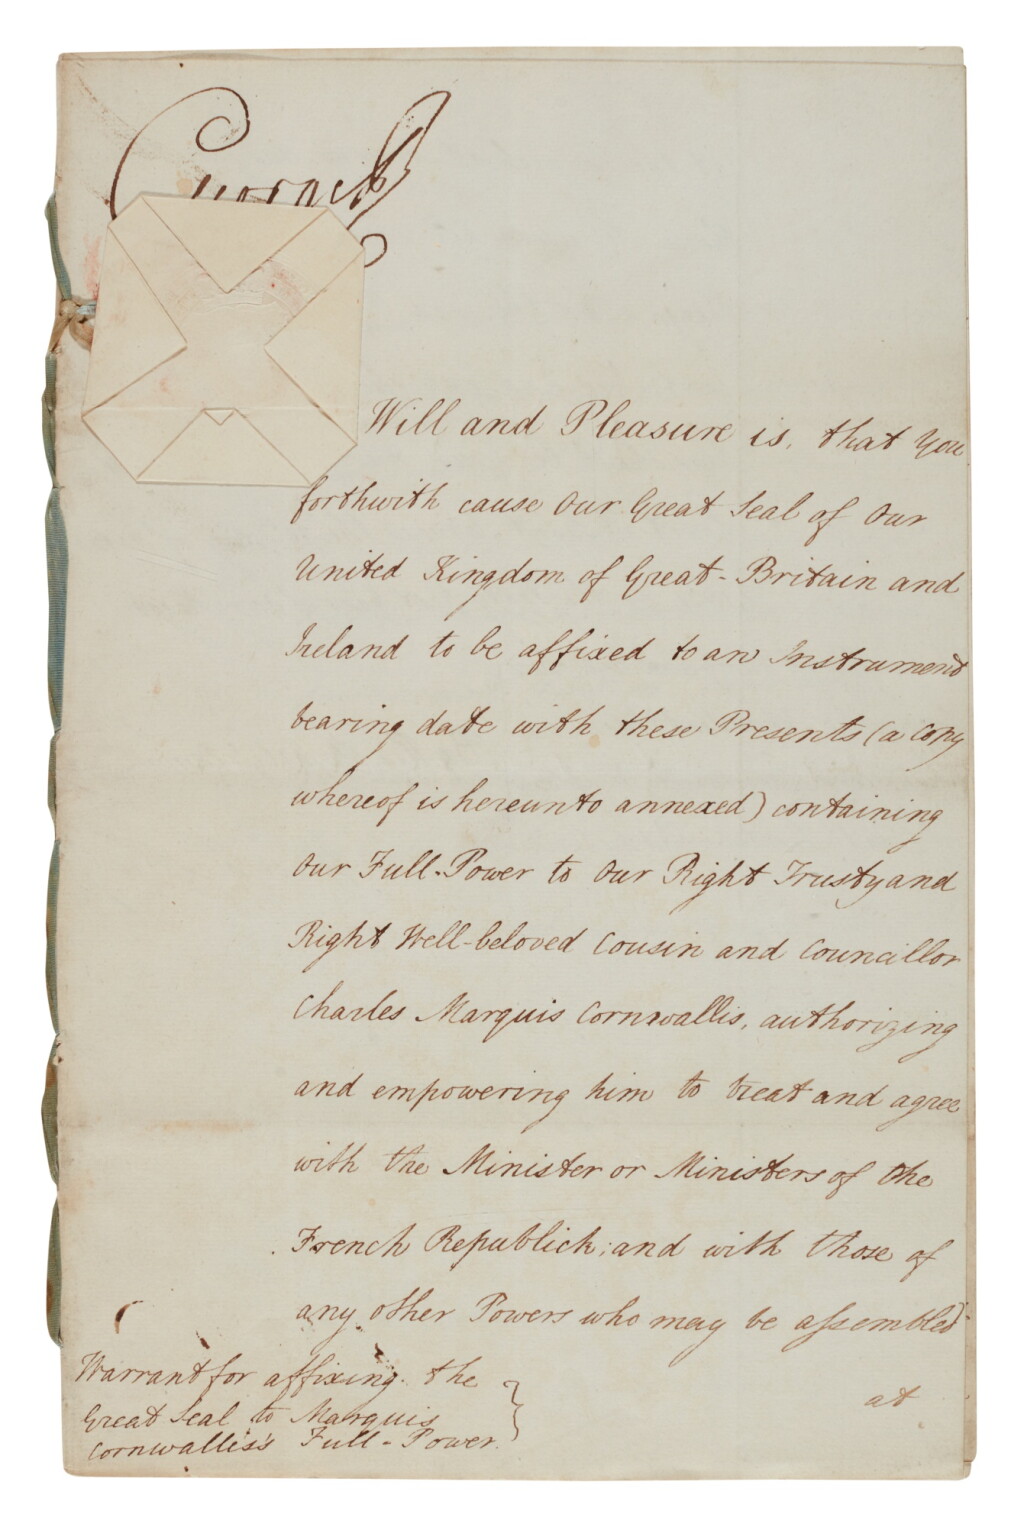 George R
Will and Pleasure is, that You
forthwith cause Our Great Seal of Our
United Kingdom of Great-Britain and
Ireland to be affixed to an Instrument
bearing date with these Presents (a Copy
whereof is hereunto annexed) containing
Our Full-Power to Our Right Trusty and
Right Well-beloved Cousin and Councillor
Charles Marquis Cornwallis, authorizing
and empowering him to treat and agree
with the Minister or Ministers of the
French Republick; and with those of
any other Powers who may be assembled
at
Warrant for affixing the
Great Seal to Marquis
Cornwallis's Full-Power.